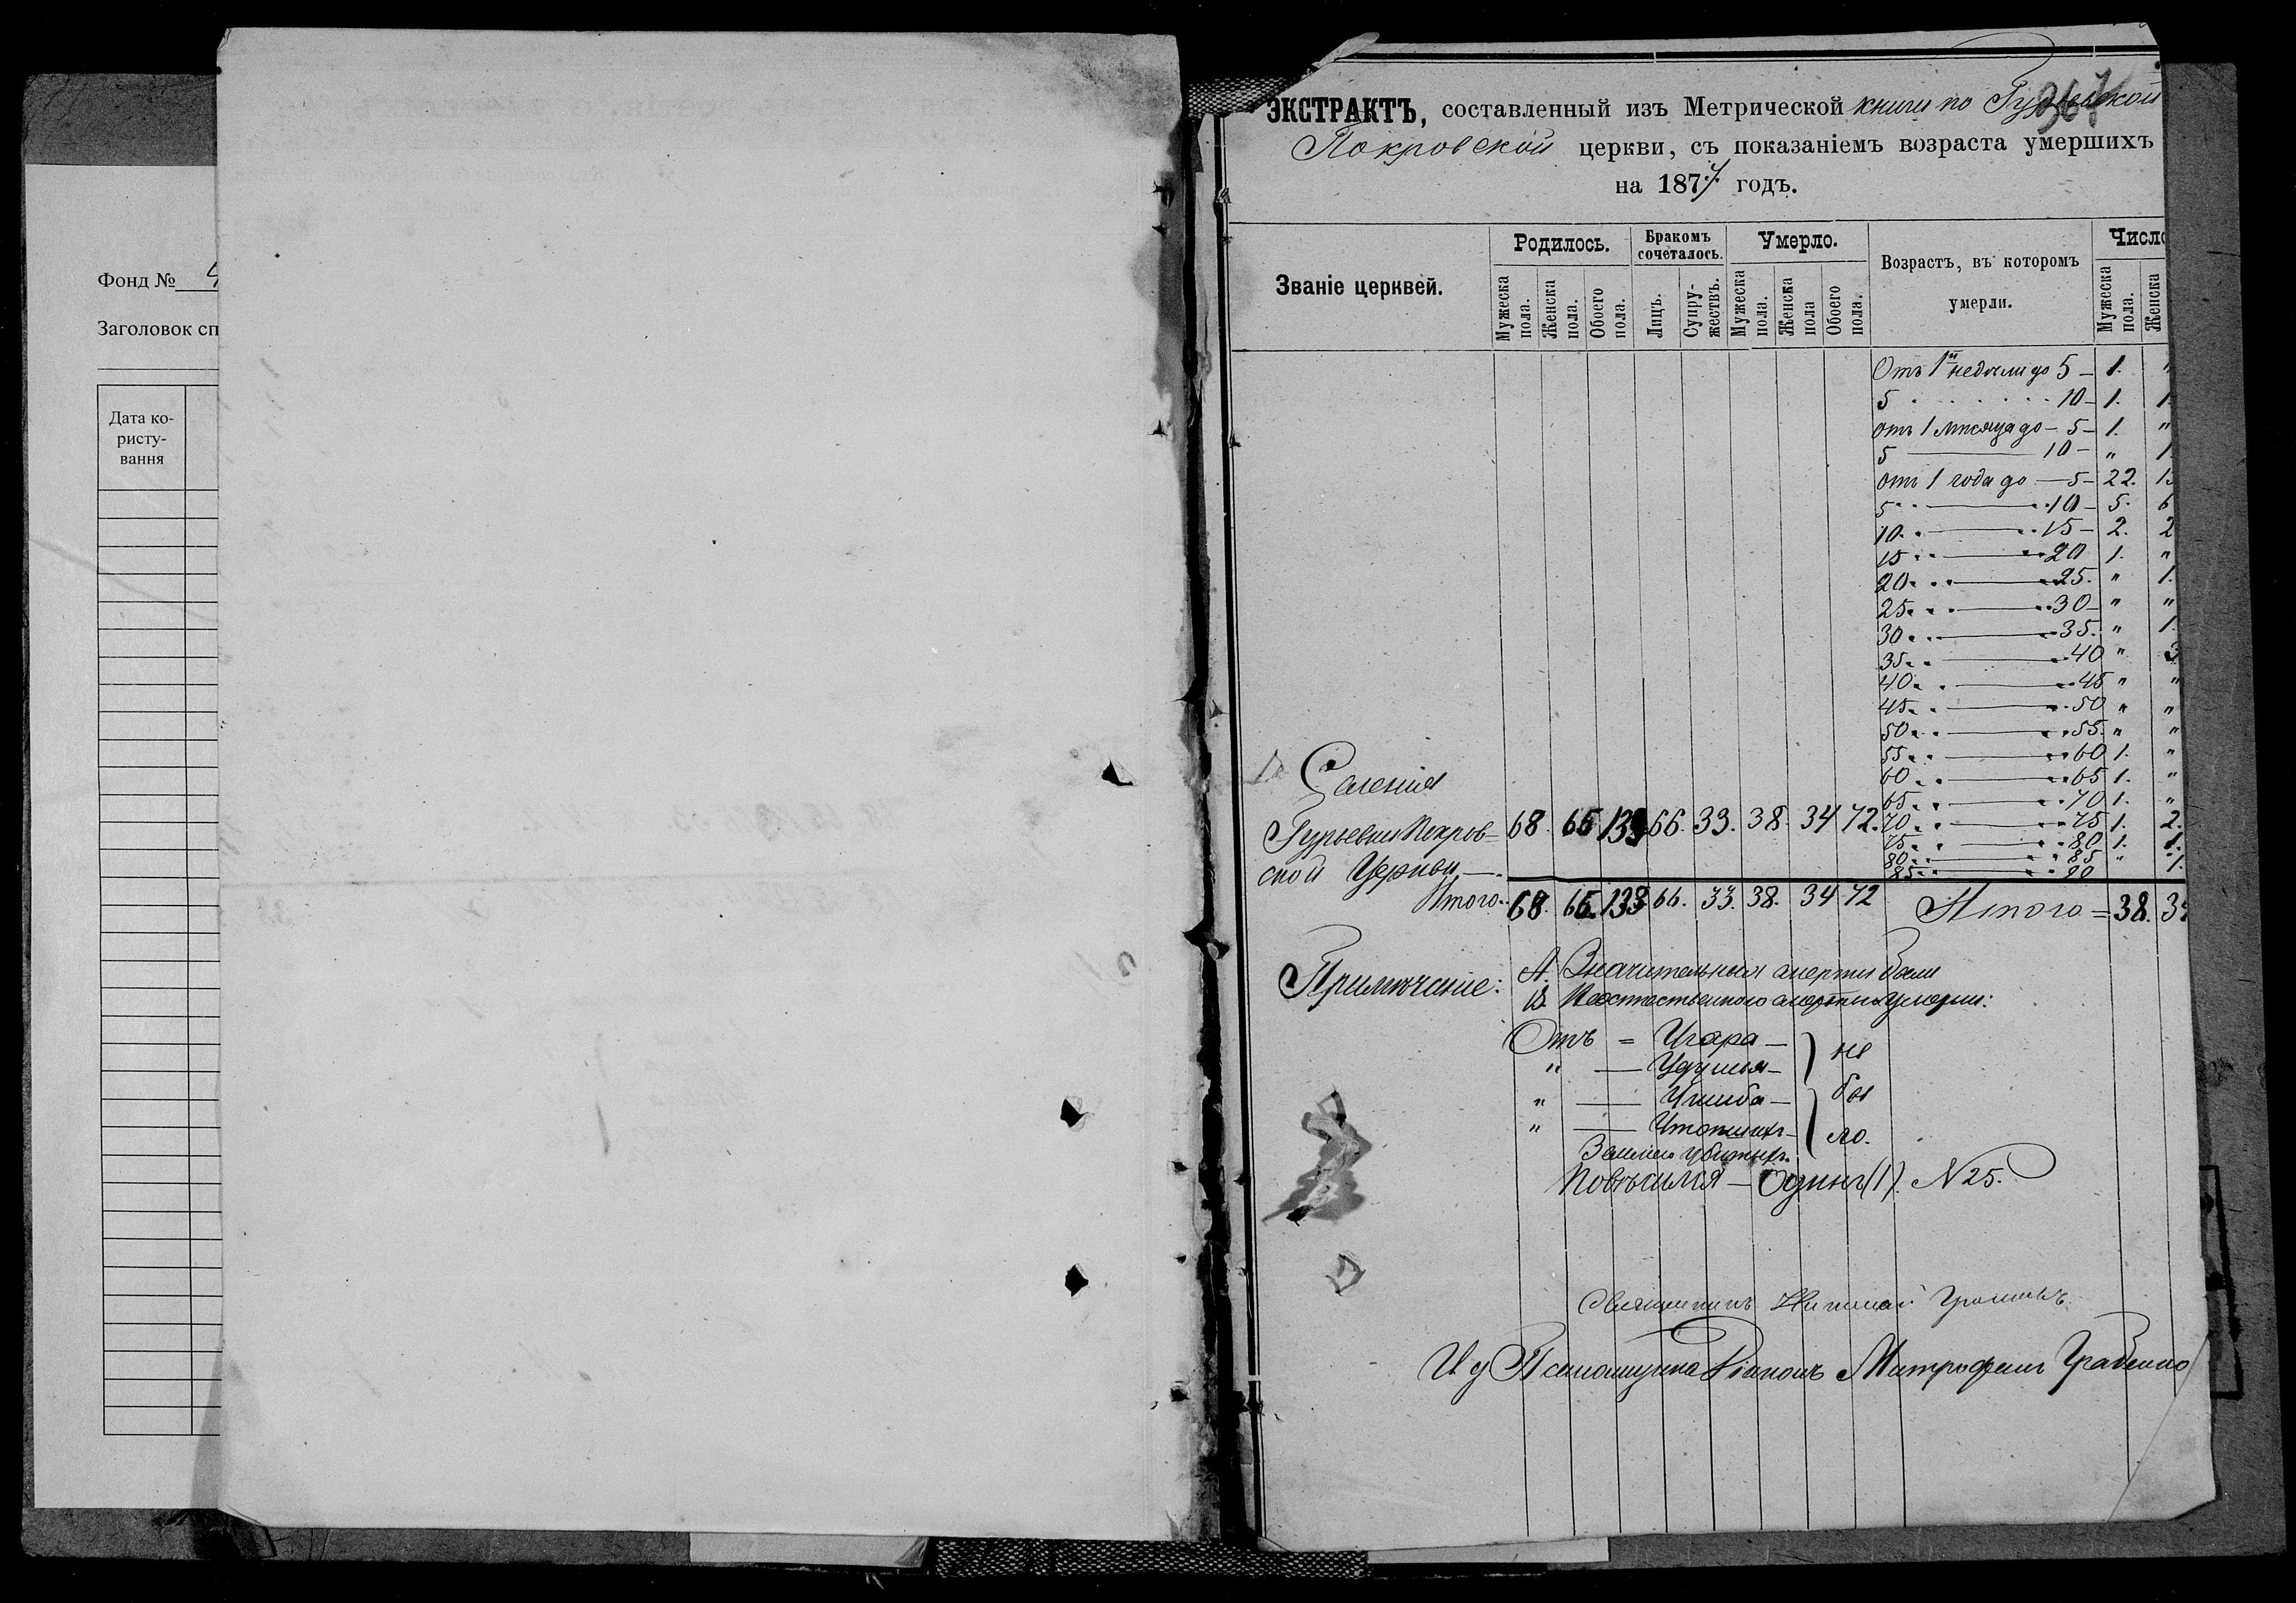 Фонд №
Заголовок сп
Дата ко-
ристу-
вання
367
ЭКСТРАКТЪ, составленный изъ Метрической книги по
Покровской церкви, съ показаніемъ возраста умершихъ
на 1877 годъ.
Званіе церквей.
Родилось.
Бракомъ
сочеталось.
Умерло.
Возрастъ, въ которомъ
умерли.
Число
Мужеска пола.
Женска пола.
Обоего пола.
Лицъ.
Супру-жествъ.
Мужеска пола.
Женска пола
Обоего пола.
Мужеска пола.
Женска
Отъ 1й недѣли до 5 – 1. "
5 . . . . . . . 10 – 1. 1.
отъ 1 мѣсяца до – 5 – 1. "
5 — 10 – " 1.
отъ 1 года до — 5 – 22. 15
5 — 10 – 5. 6
10 — 15 – 2. 2
15 — 20 1. "
20 — 25. " 1.
25 — 30 – " "
30 — 35. " 1.
35 — 40 " 3
40 — 45 " "
45 — 50 " "
50 — 55. " "
55 — 60 1. "
60 — 65 1. "
65 — 70 1. "
70 — 75 1. 2.
75 — 80 1. 1.
80 — 85 " 1.
85 — 90
Селенія
Гурьевки Покров=
ской Церкви —
68. 65 133 66. 33. 38. 34 72.
Итого. 68. 65. 133 66. 33. 38. 34 72 Итого = 38. 34
Примѣчаніе: А. Значительныя смерти были
В Неестественною смертью умерли:
Отъ = Угара — не
" — Удушья —
" — Ушиба — бы
" — Утопшихъ – ло.
Землею убитыхъ
Повѣсился — Одинъ (1). N 25.
Священникъ Николай
И д Псаломщика Діаконъ Митрофанъ Грабенко